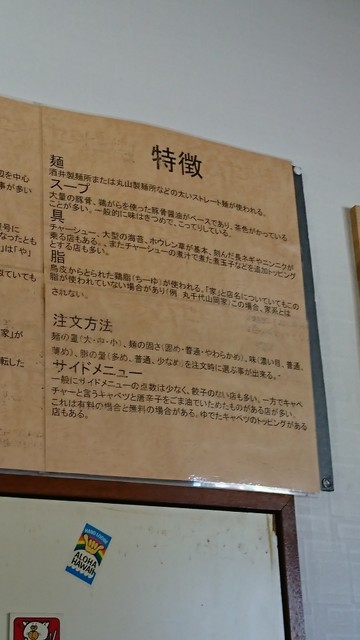 特徴
麺
酒井製麺所または丸山製麺所などの太いストレート麺が使われる。
スープ
大量の豚骨、鶏がらを使った豚骨醤油がベースであり、茶色がかっている
ことが多い。一般的に味はきつめで、こってりしている。
具
チャーシュー、大型の海苔、ホウレン草が基本。刻んだ長ネギやニンニクが
乗る店もある。またチャーシューの煮汁で煮た煮玉子などを追加トッピング
とする店も多い。
脂
鳥皮からとられた鶏脂(ちーゆ)が使われる。「家」と店名についていてもこの
脂が使われていない場合があり(例 丸千代山岡家)この場合、家系とは
されない。
注文方法
麺の量(大・中・小)、麺の固さ(固め・普通・やわらかめ)、味(濃い目、普通、
薄め)、脂の量(多め、普通、少なめ)を注文時に選ぶ事が出来る。
サイドメニュー
一般にサイドメニューの点数は少なく、餃子のない店も多い。一方でキャベ
チャーと言うキャベツと唐辛子をごま油でいためたものがある店が多い。
これは有料の場合と無料の場合がある。ゆでたキャベツのトッピングがある
店もある。
辺を中心
事が多い
号に
なったとも
」は「や」
ていても
家」が
転した
HANG LOOSE
ALOHA
HAWAII